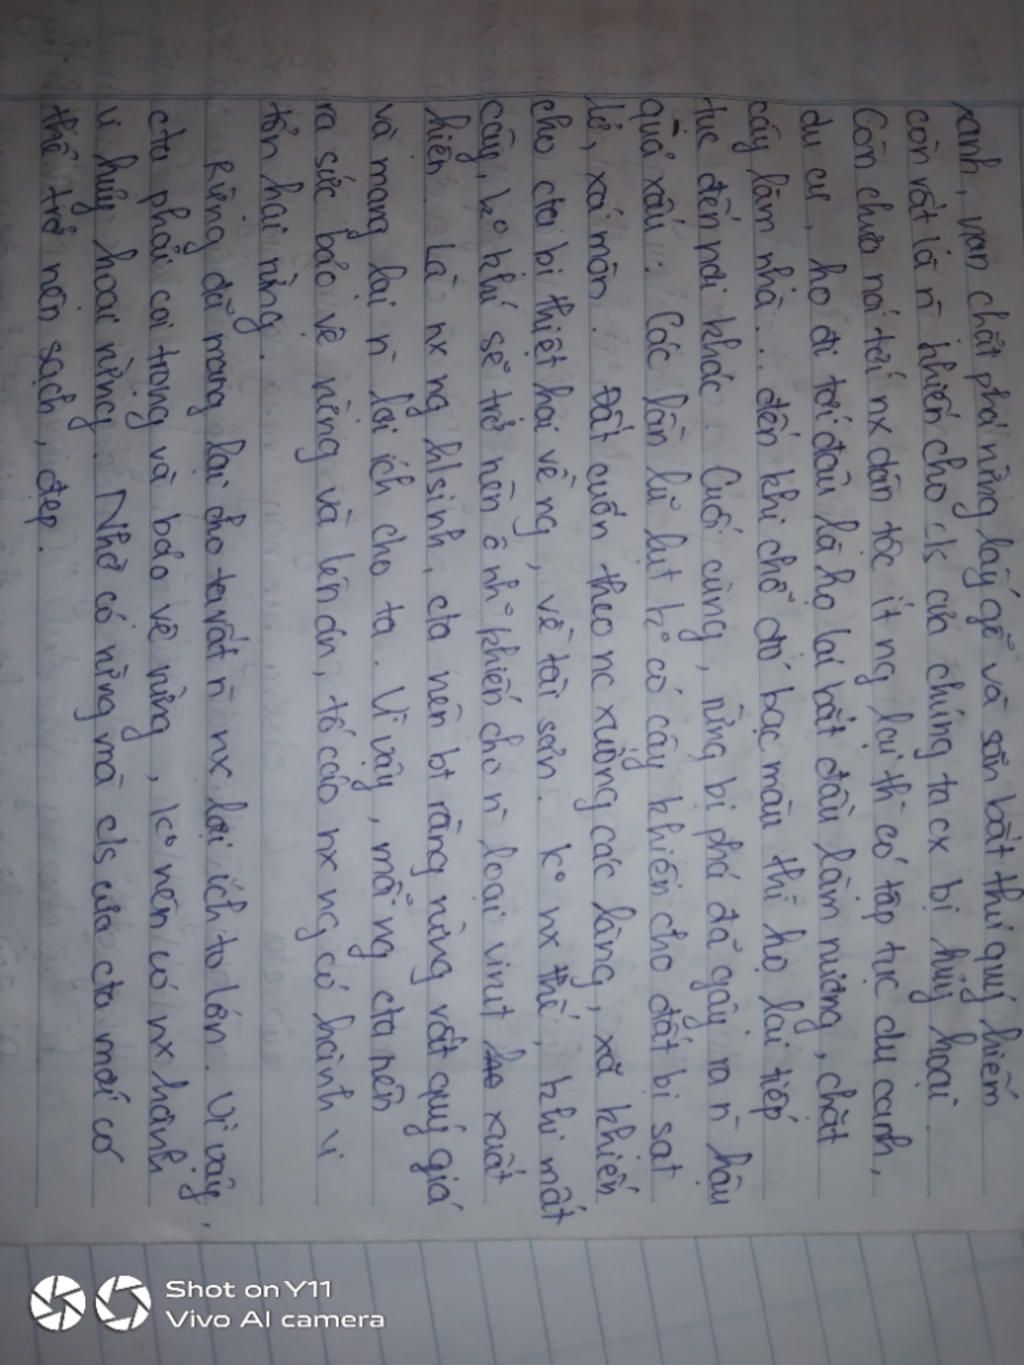 xanh, vạn chặt phá rừng lấy gỗ và săn bắt thú quý hiếm
còn rất là n̄ khiến cho cls của chúng ta cx bị hủy hoại.
Còn chưa nói tới nx dân tộc ít ng lại thì có tập tục du canh,
du cư, họ đi tới đâu là họ lại bắt đầu làm nương, chặt
cây làm nhà... đến khi chỗ đó bạc màu thì họ lại tiếp
tục đến nơi khác. Cuối cùng, rừng bị phá đã gây ra n̄ hậu
quả xấu: Các lần lũ lụt k° có cây khiến cho đất bị sạt
lở, xói mòn. Đất cuốn theo nc xuống các làng, xã khiến
cho cta bị thiệt hại về ng, về tài sản. k° nx thế, khi mất
cây, k° khí sẽ trở nên ô nh° khiến cho n̄ loại virut xuất
hiện. Là nx ng hlsinh, cta nên bt rằng rừng rất quý giá
và mang lại n̄ lợi ích cho ta. Vì vậy, mỗi ng cta nên
ra sức bảo vệ rừng và lên án, tố cáo nx ng có hành vi
tổn hại rừng.
Rừng đã mang lại cho ta rất n̄ nx lợi ích to lớn. Vì vậy,
cta phải coi trọng và bảo vệ rừng, k° nên có nx hành
vi hủy hoại rừng. Nhờ có rừng mà cls của cta mới có
thể trở nên sạch, đẹp.
Shot on Y11
Vivo AI camera